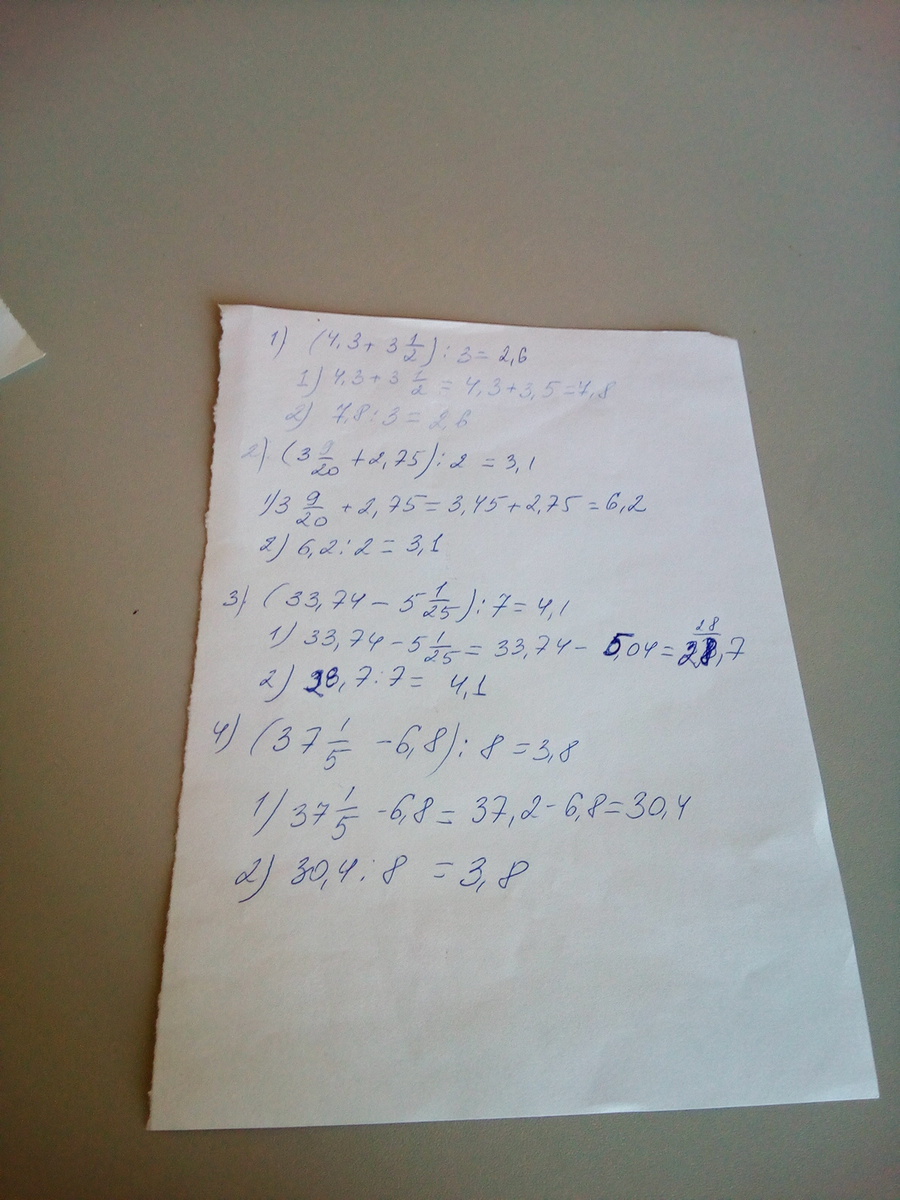 1) (4,3 + 3 1/2) : 3 = 2,6
1) 4,3 + 3 1/2 = 4,3 + 3,5 = 7,8
2) 7,8 : 3 = 2,6
2) (3 9/20 + 2,75) : 2 = 3,1
1) 3 9/20 + 2,75 = 3,45 + 2,75 = 6,2
2) 6,2 : 2 = 3,1
3) (33,74 - 5 1/25) : 7 = 4,1
28
1) 33,74 - 5 1/25 = 33,74 - 5,04 = 28,7
2) 28,7 : 7 = 4,1
4) (37 1/5 - 6,8) : 8 = 3,8
1) 37 1/5 - 6,8 = 37,2 - 6,8 = 30,4
2) 30,4 : 8 = 3,8